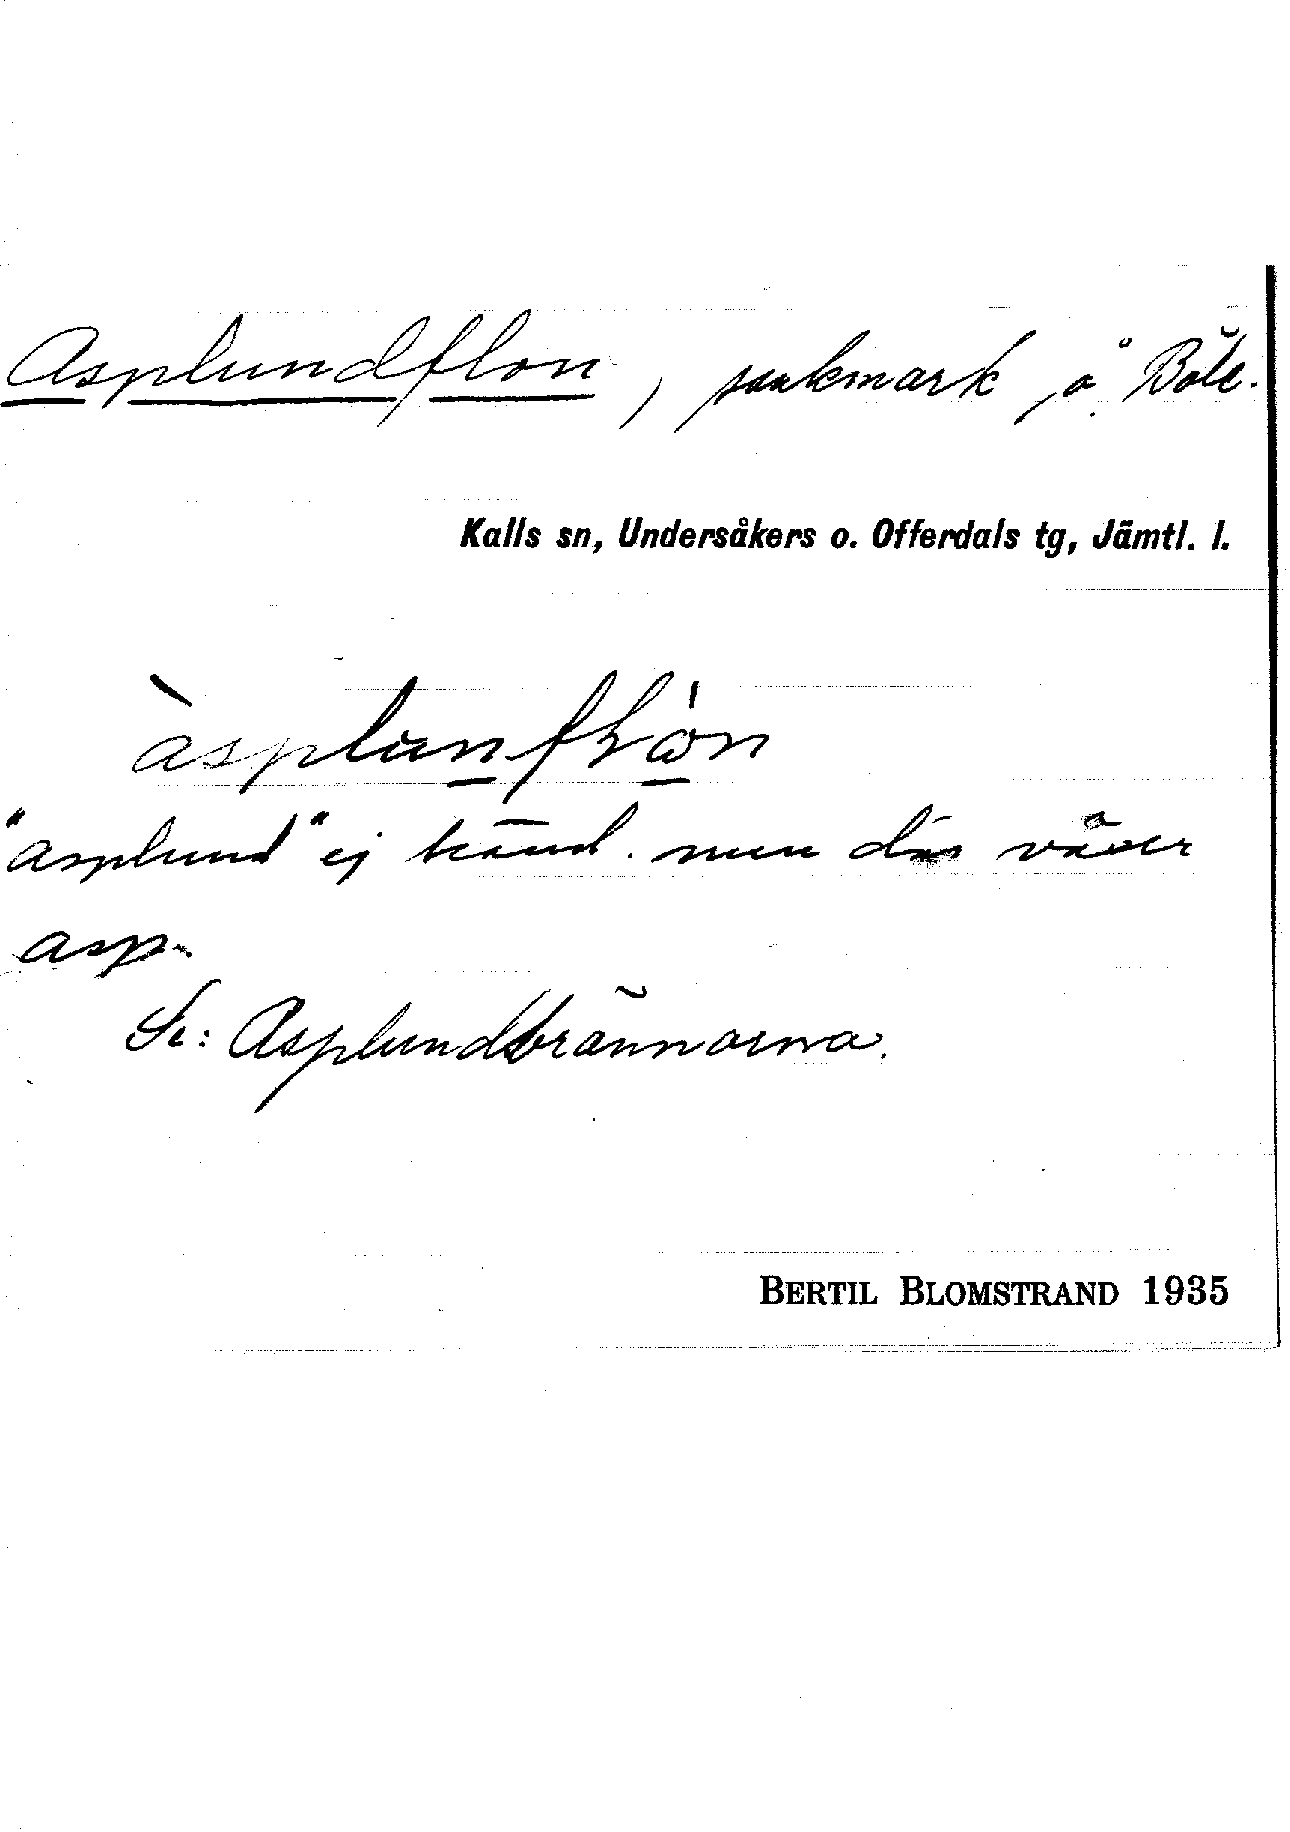 Asplundflon, sankmark å Böle.
Kalls sn, Undersåkers o. Offerdals tg, Jämtl. l.
"asplund" ej känd. men där växer
asp.
Se: Asplundbrännorna.
BERTIL BLOMSTRAND 1935